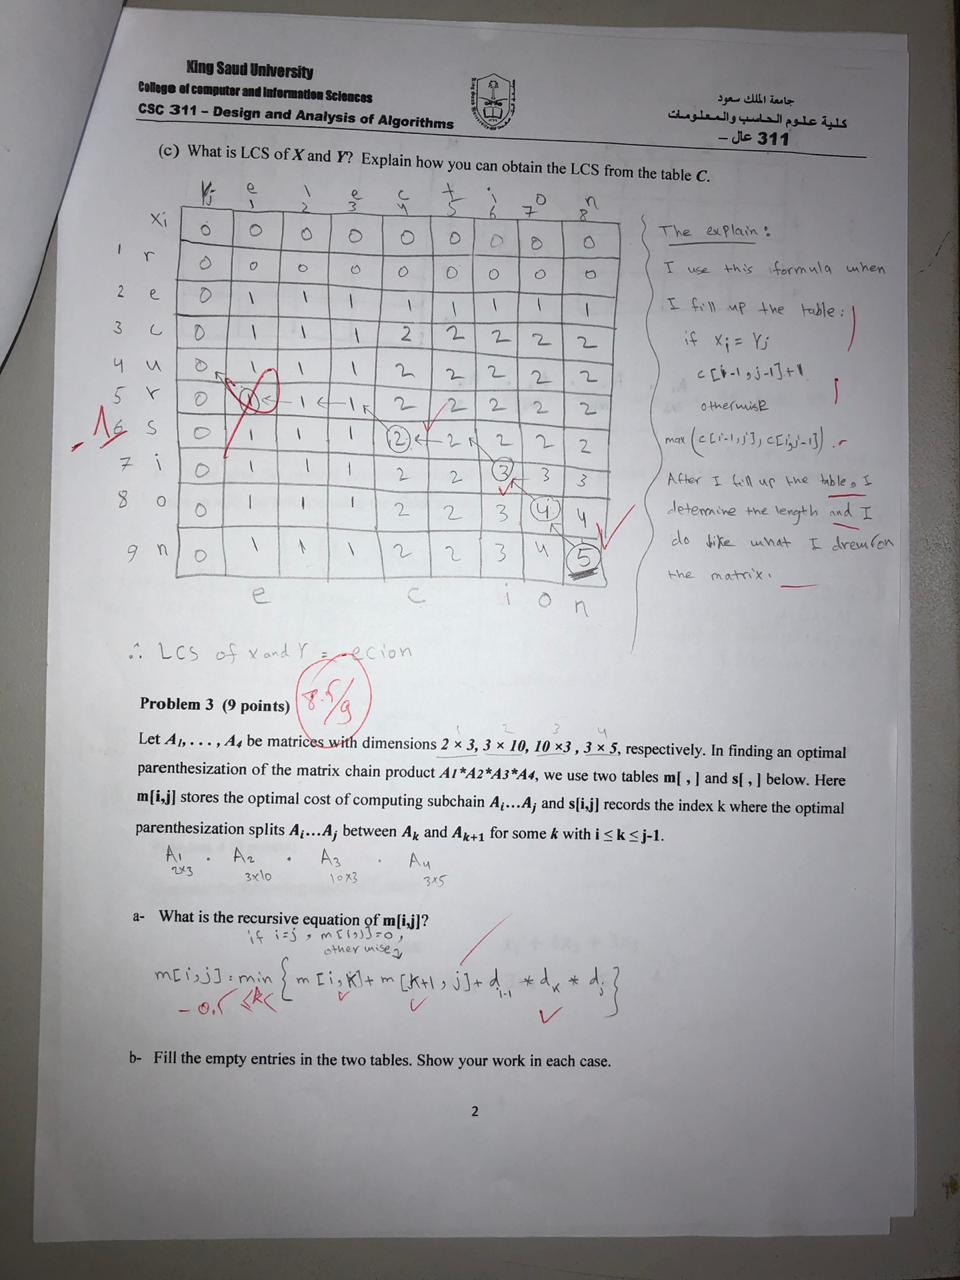 King Saud University
College of computer and Information Sciences
CSC 311 – Design and Analysis of Algorithms
جامعة الملك سعود
كلية علوم الحاسب والمعلومات
311 عال –
(c) What is LCS of X and Y? Explain how you can obtain the LCS from the table C.
Yj e l e c t i o n
1 2 3 4 5 6 7 8
Xi 0 0 0 0 0 0 0 0 0
1 r 0 0 0 0 0 0 0 0 0
2 e 0 1 1 1 1 1 1 1 1
3 c 0 1 1 1 2 2 2 2 2
4 u 0 1 1 1 2 2 2 2 2
5 r 0 1 1 1 2 2 2 2 2
6 s 0 1 1 1 2 2 2 2 2
7 i 0 1 1 1 2 2 3 3 3
8 o 0 1 1 1 2 2 3 4 4
9 n 0 1 1 1 2 2 3 4 5
e c i o n
-1
The explain:
I use this formula when
I fill up the table:
if Xi = Yj
c[i-1,j-1]+1
otherwise
max(c[i-1,j],c[i,j-1])
After I fill up the table, I
determine the length and I
do like what I drew on
the matrix.
∴ LCS of x and Y = ecion
Problem 3 (9 points)
8.5/9
1 2 3 4
Let A1, . . . , A4 be matrices with dimensions 2 × 3, 3 × 10, 10 ×3 , 3 × 5, respectively. In finding an optimal
parenthesization of the matrix chain product A1*A2*A3*A4, we use two tables m[ , ] and s[ , ] below. Here
m[i,j] stores the optimal cost of computing subchain Ai...Aj and s[i,j] records the index k where the optimal
parenthesization splits Ai...Aj between Ak and Ak+1 for some k with i ≤ k ≤ j-1.
A1 . A2 . A3 . A4
2x3 3x10 10x3 3x5
a- What is the recursive equation of m[i,j]?
if i=j, m[i,j]=0,
otherwise,
m[i,j] = min { m[i,k]+m[k+1,j]+di-1 * dk * dj }
-0.5 ≤k<
b- Fill the empty entries in the two tables. Show your work in each case.
2